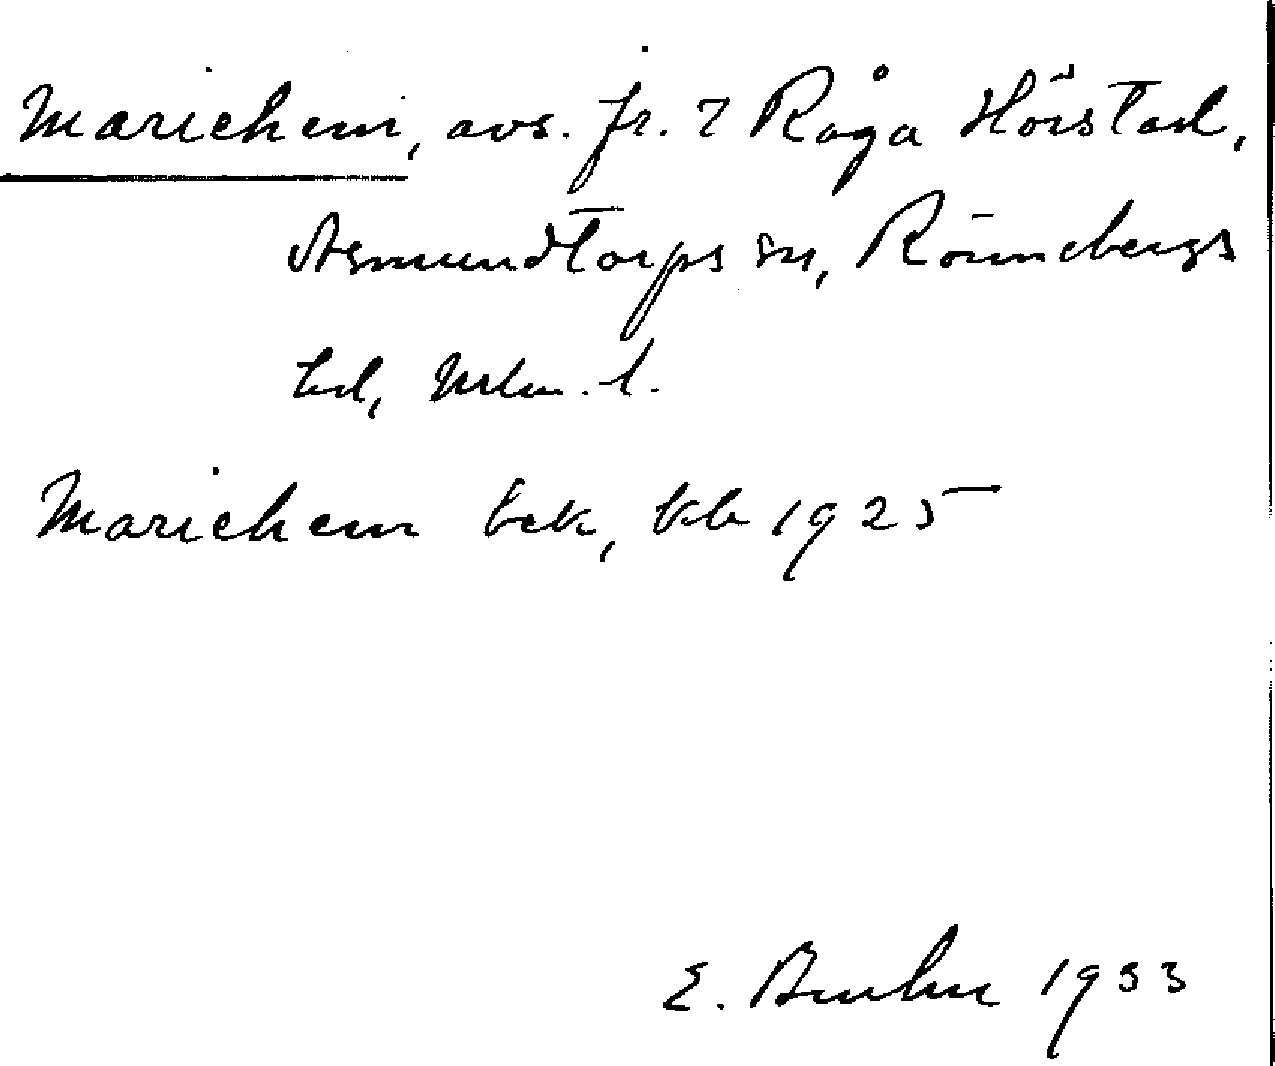 Mariehem, avs. fr. 7 Råga Hörstad,
Asmundtorps sn, Rönnebergs
hd, Mlm. l.
Mariehem bek, kb 1925
E. Bruhn 1933